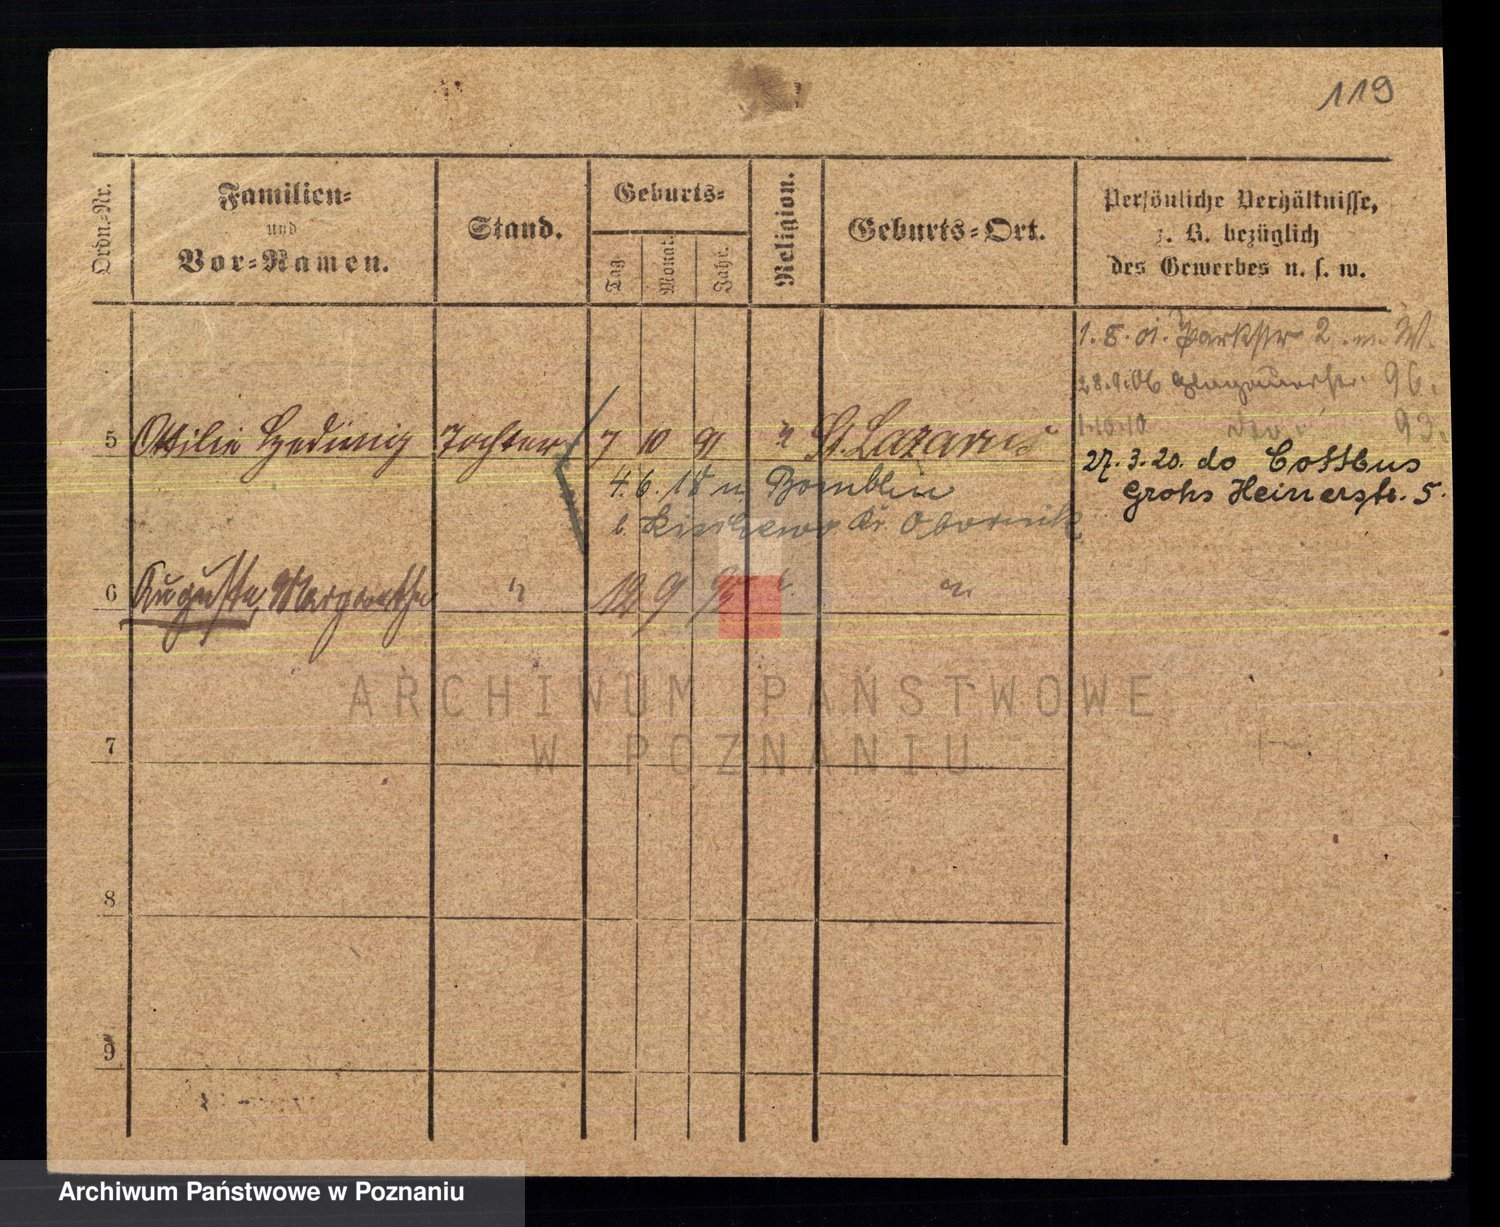 119
Ordn.-Nr.
Familien-
und
Vor-Namen.
Stand.
Geburts-
Tag.
Monat.
Jahr.
Religion.
Geburts-Ort.
Persönliche Verhältnisse,
z. B. bezüglich
des Gewerbes u. s. w.
1. 8. 01. Parkstr 2. m. W.
28.9.06 Glogauerstr. 96.
1.10.10 93.
5 Ottilie Hedwig Tochter 7 10 91 " St. Lazarus
27. 3. 20. do Cottbus
4. 6. 18 n Bomblin
Grohs Heinerstr. 5.
b. Kr. Obornik
6 Auguste, Margarethe " 12 9 95 " "
ARCHIWUM PAŃSTWOWE
W POZNANIU
7
8
9
Archiwum Państwowe w Poznaniu